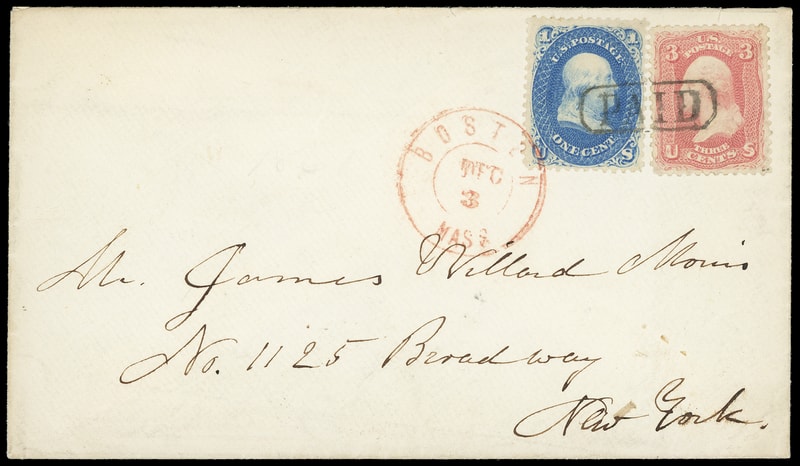 1 1
U.S. POSTAGE
ONE CENT
U S
3 3
U.S.
POSTAGE
THREE
CENTS
U S
PAID
BOSTON
DEC
3
MASS
Mr. James Willard Morris
No. 1125 Broadway
New York.